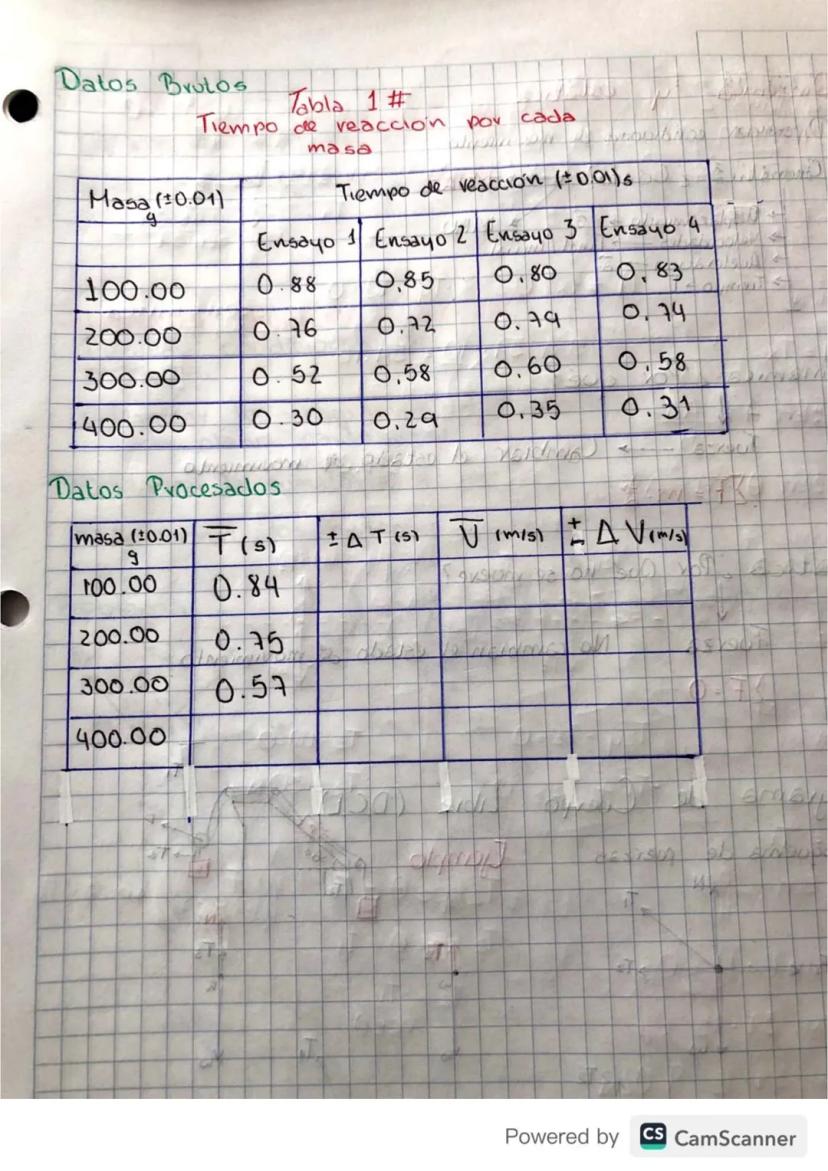 Datos Brutos
Tabla 1 #
Tiempo de reaccion por cada
masa
Masa (±0.01) g Tiempo de reacción (±0.01)s
Ensayo 1 Ensayo 2 Ensayo 3 Ensayo 4
100.00 0.88 0,85 0.80 0.83
200.00 0.76 0.72 0.79 0.74
300.00 0.52 0,58 0.60 0.58
400.00 0.30 0.29 0.35 0.31
Datos Procesados
masa (±0.01) g T̅ (s) ± Δ T (s) V̅ (m/s) ± Δ V(m/s)
100.00 0.84
200.00 0.75
300.00 0.57
400.00
Powered by CS CamScanner